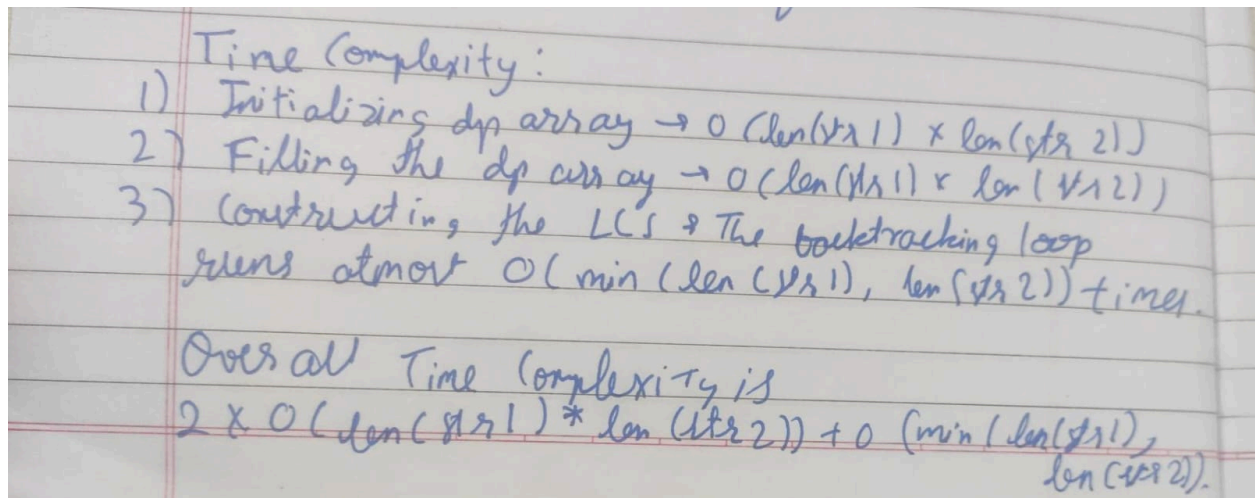 Time Complexity:
1) Initializing dp array → O (len(str1) × len(str2))
2) Filling the dp array → O(len(str1) × len(str2))
3) Constructing the LCS → The backtracking loop
runs atmost O(min(len(str1), len(str2)) times.
Overall Time Complexity is
2 × O(len(str1) * len(str2)) + O (min(len(str1),
len(str2)).